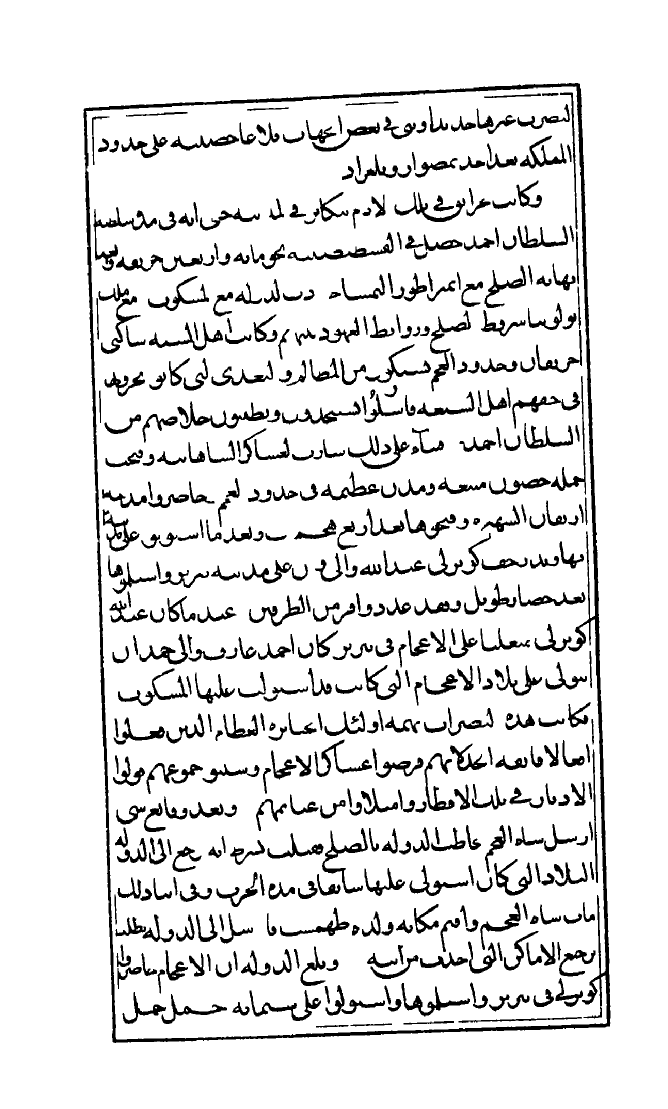 في بعض الجهات على حدود
المملكة بعد احد
وكانت في تلك الايام في حتى انه في مدة سلطنة
السلطان احمد حصل في القسطنطينية نحو مايه واربعين حريقه وبعد
نهاية الصلح مع امبراطور النمسا مع المسكوب مع ملك
شروط الصلح وروابط العهود بينهم وكانت اهل السنه ساكني
وحدود العجم يشكون من المظالم والتعدي التي كانو يجرونها
في حقهم اهل الشيعه فارسلوا يستنجدون ويطلبون خلاصهم من
السلطان احمد فبناء على ذلك سارت العساكر الشاهانيه وفتحت
جمله حصون منيعه ومدن عظيمه في حدود العجم حاصروا مدينة
الشهيره وفتحوها بعد اربع وبعد ما استولو على مدينة
نهاوند زحف كوبرلي عبد الله والي وان على مدينه تبريز واستلموها
بعد حصار طويل وبعد عدد وافر من الطرفين عندما كان عبد الله
كوبرلي على الاعجام في تبريز كان احمد عارف والي همدان
يتولى على بلاد الاعجام التي كانت قد استولت عليها المسكوب
فكانت هذه النصرات بهمه اوليك الجبابره العظام الذين فعلوا
افعالا فايقه فرضوا عساكر الاعجام وشتتو جموعهم فولوا
الادبار في تلك الاقطار وامتلاوا من غنايمهم وبعد وقايع شتى
ارسل شاه العجم يخاطب الدوله بالصلح فقبلت بشرط انه يرجع الى الدوله
البلاد التي كان استولى عليها سابقا في مدة الحرب وفي اثنا ذلك
مات شاه العجم واقيم مكانه ولده طهمسب فارسل الى الدوله يطلب
يرجع الاماكن التي اخذت من ابيه وبلغ الدوله ان الاعجام حاصروا
كوبرلي في تبريز واستلموها واستولوا على ستمايه حمل جمل